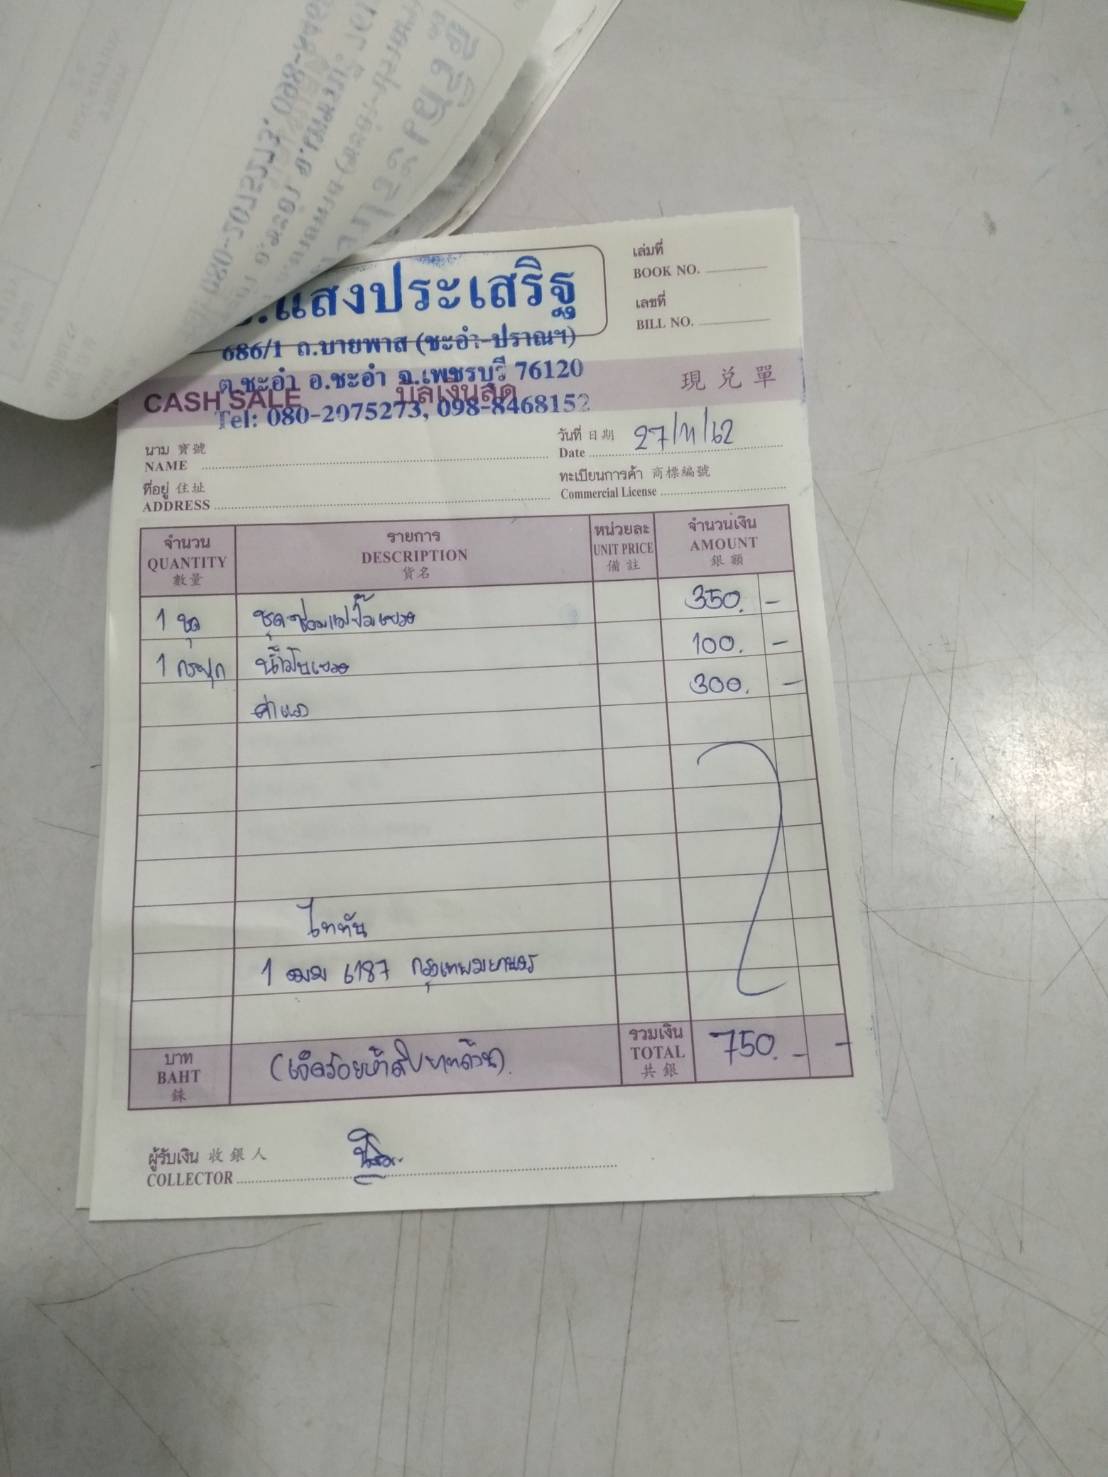 .แสงประเสริฐ
686/1 ถ.บายพาส (ชะอำ-ปราณฯ)
ต.ชะอำ อ.ชะอำ จ.เพชรบุรี 76120
Tel: 080-2075273, 098-8468152
เล่มที่
BOOK NO.
เลขที่
BILL NO.
CASH SALE บิลเงินสด 現兌單
วันที่ 日期 27/11/62
Date
นาม 寶號
NAME
ทะเบียนการค้า 商標編號
Commercial License
ที่อยู่ 住址
ADDRESS
จำนวน รายการ หน่วยละ จำนวนเงิน
QUANTITY DESCRIPTION UNIT PRICE AMOUNT
數量 貨名 備註 銀額
1 ชุด ชุดซ่อมแม่ปั๊มเบรค 350. -
1 กระปุก น้ำมันเบรค 100. -
ค่าแรง 300. -
ไททัน
1 ฒฒ 6187 กรุงเทพมหานคร
บาท รวมเงิน
BAHT (เจ็ดร้อยห้าสิบบาทถ้วน) TOTAL 750. - -
銖 共銀
ผู้รับเงิน 收銀人
COLLECTOR